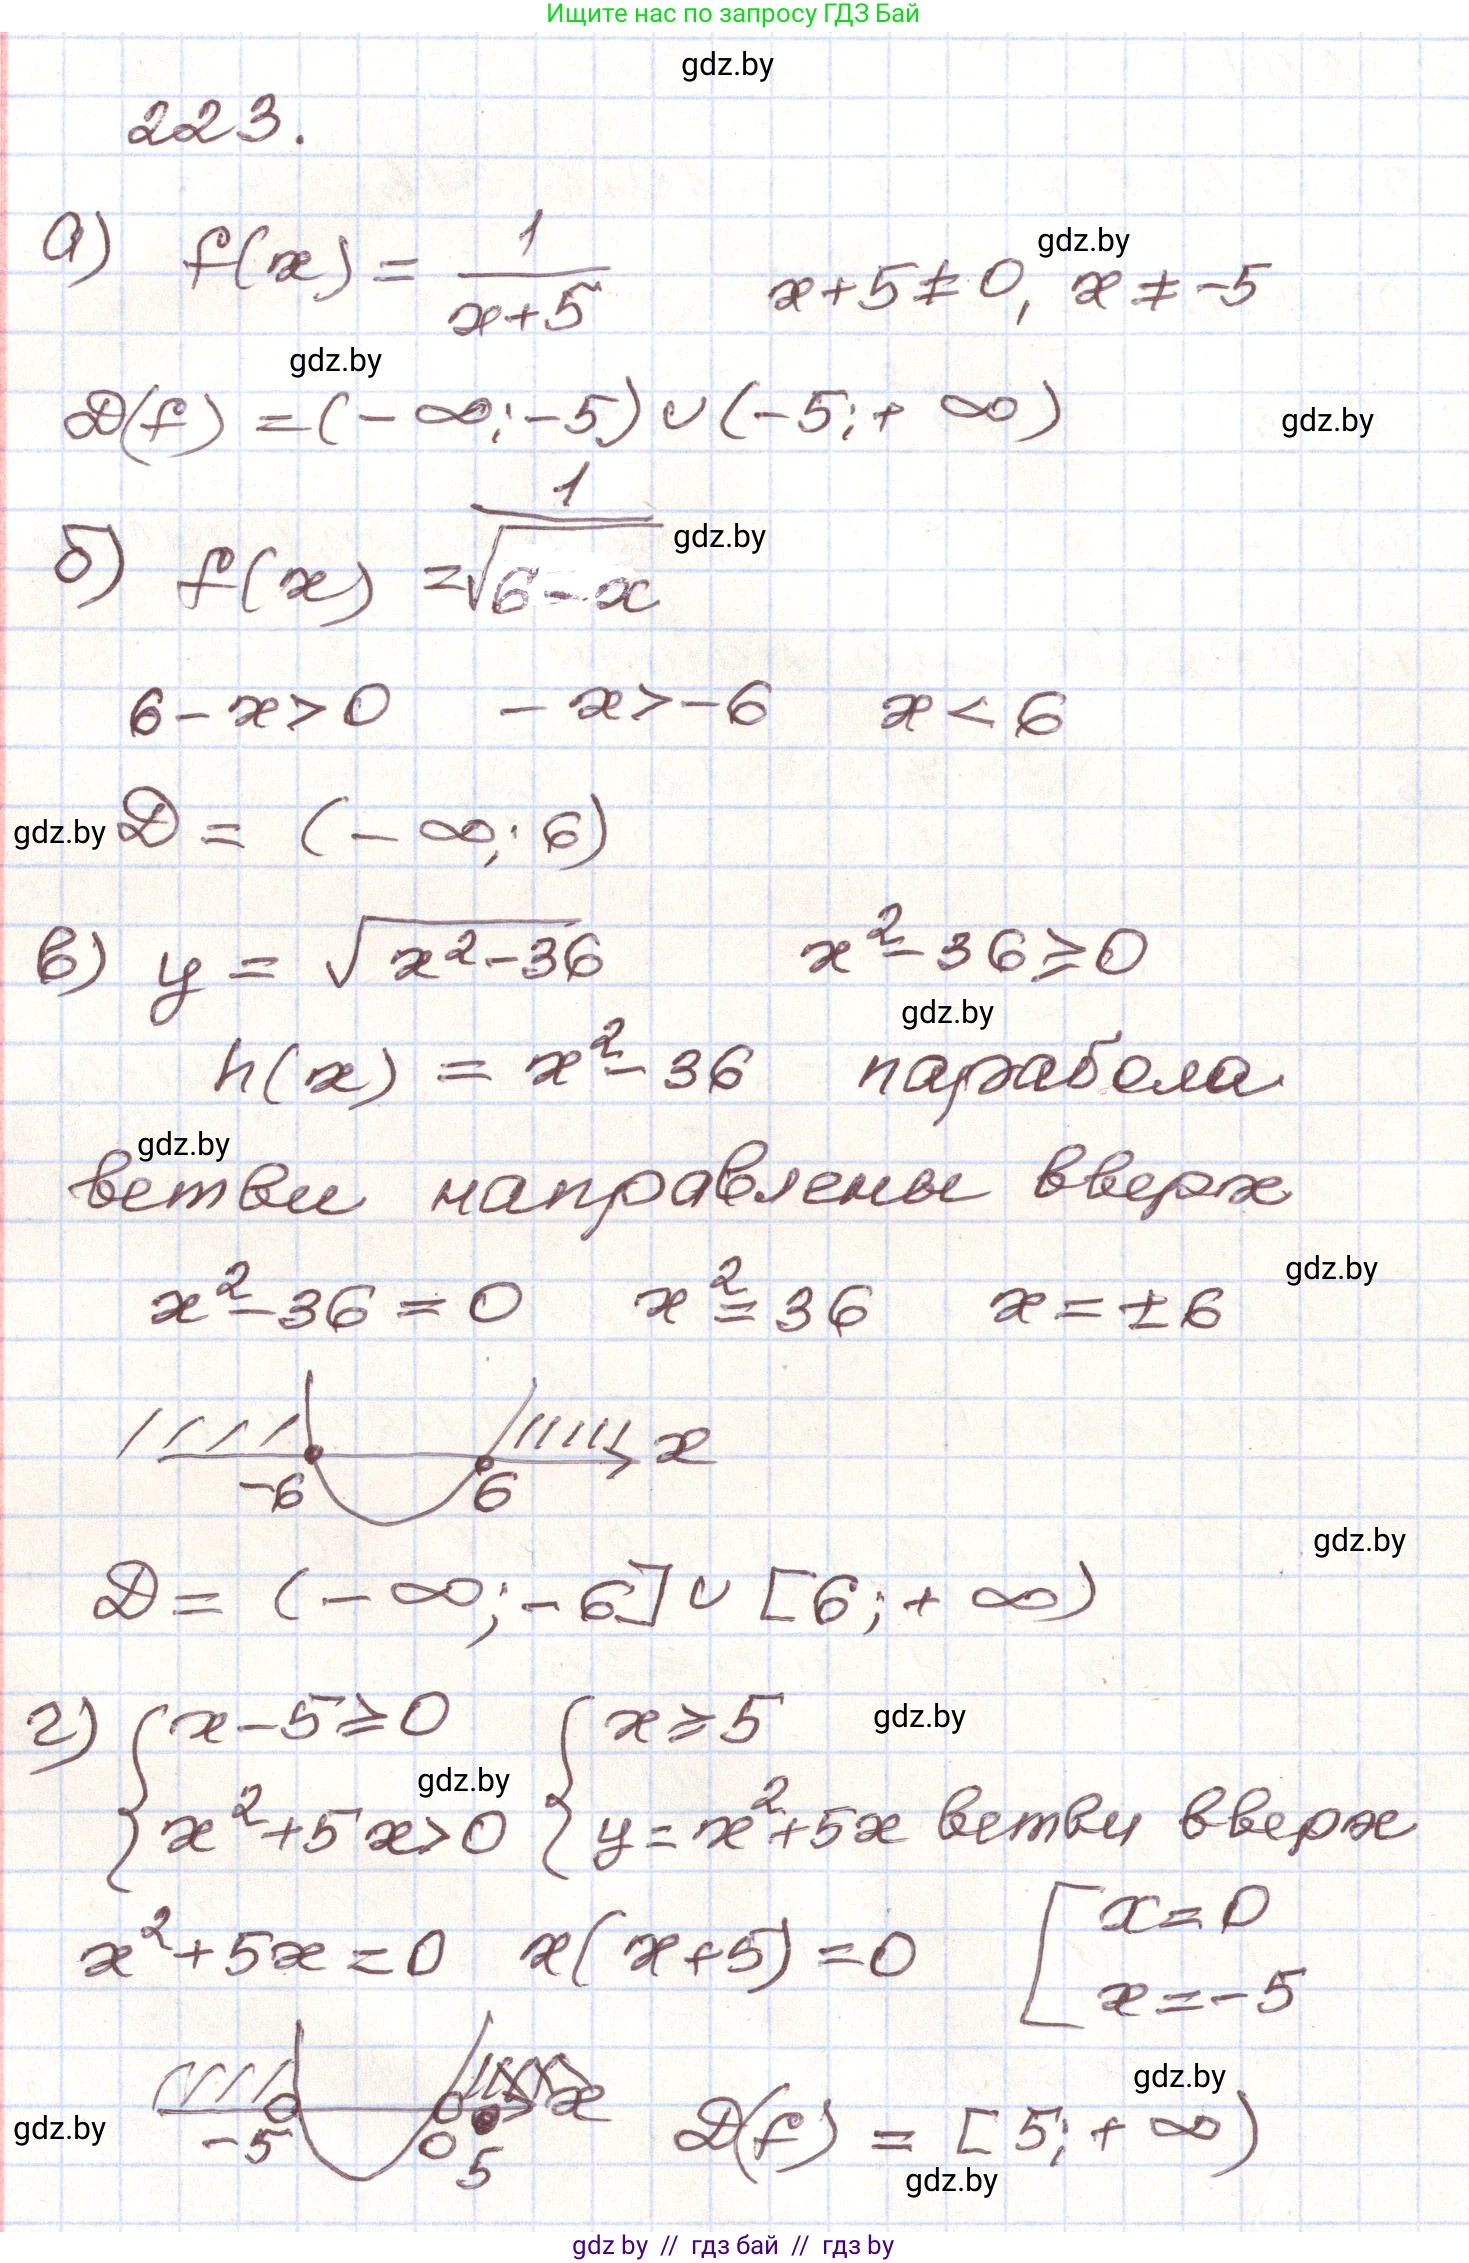 Ищите нас по запросу ГДЗ Бай
gdz.by
223.
а) f(x) = 1/(x+5) x+5≠0, x≠-5
gdz.by
gdz.by
D(f) = (-∞; -5) ∪ (-5; +∞)
gdz.by
б) f(x) = 1/√(6-x)
gdz.by
6-x>0 -x>-6 x<6
gdz.by D = (-∞; 6)
в) y = √(x²-36) x²-36≥0
gdz.by
h(x) = x²-36 парабола
gdz.by
ветви направлены вверх
gdz.by
x²-36=0 x²=36 x=±6
-6 6 x
gdz.by
D = (-∞; -6] ∪ [6; +∞)
г) { x-5≥0 { x≥5
gdz.by
gdz.by
x²+5x>0 y=x²+5x ветви вверх
x²+5x=0 x(x+5)=0 [ x=0
x=-5
gdz.by
-5 0 5 x D(f) = [5; +∞)
gdz.by
gdz.by
gdz by // гдз бай // гдз by